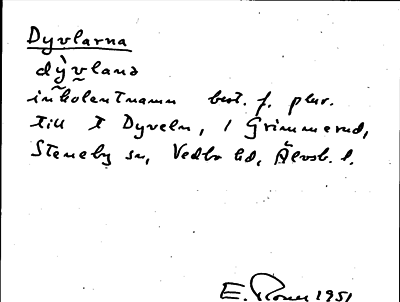 Dyvlarna
dỳvlana
inbolentnamn best. f. plur.
till t Dyveln, i Grimmerud,
Steneby sn, Vedbo hd, Älvsb. l.
E. 1951